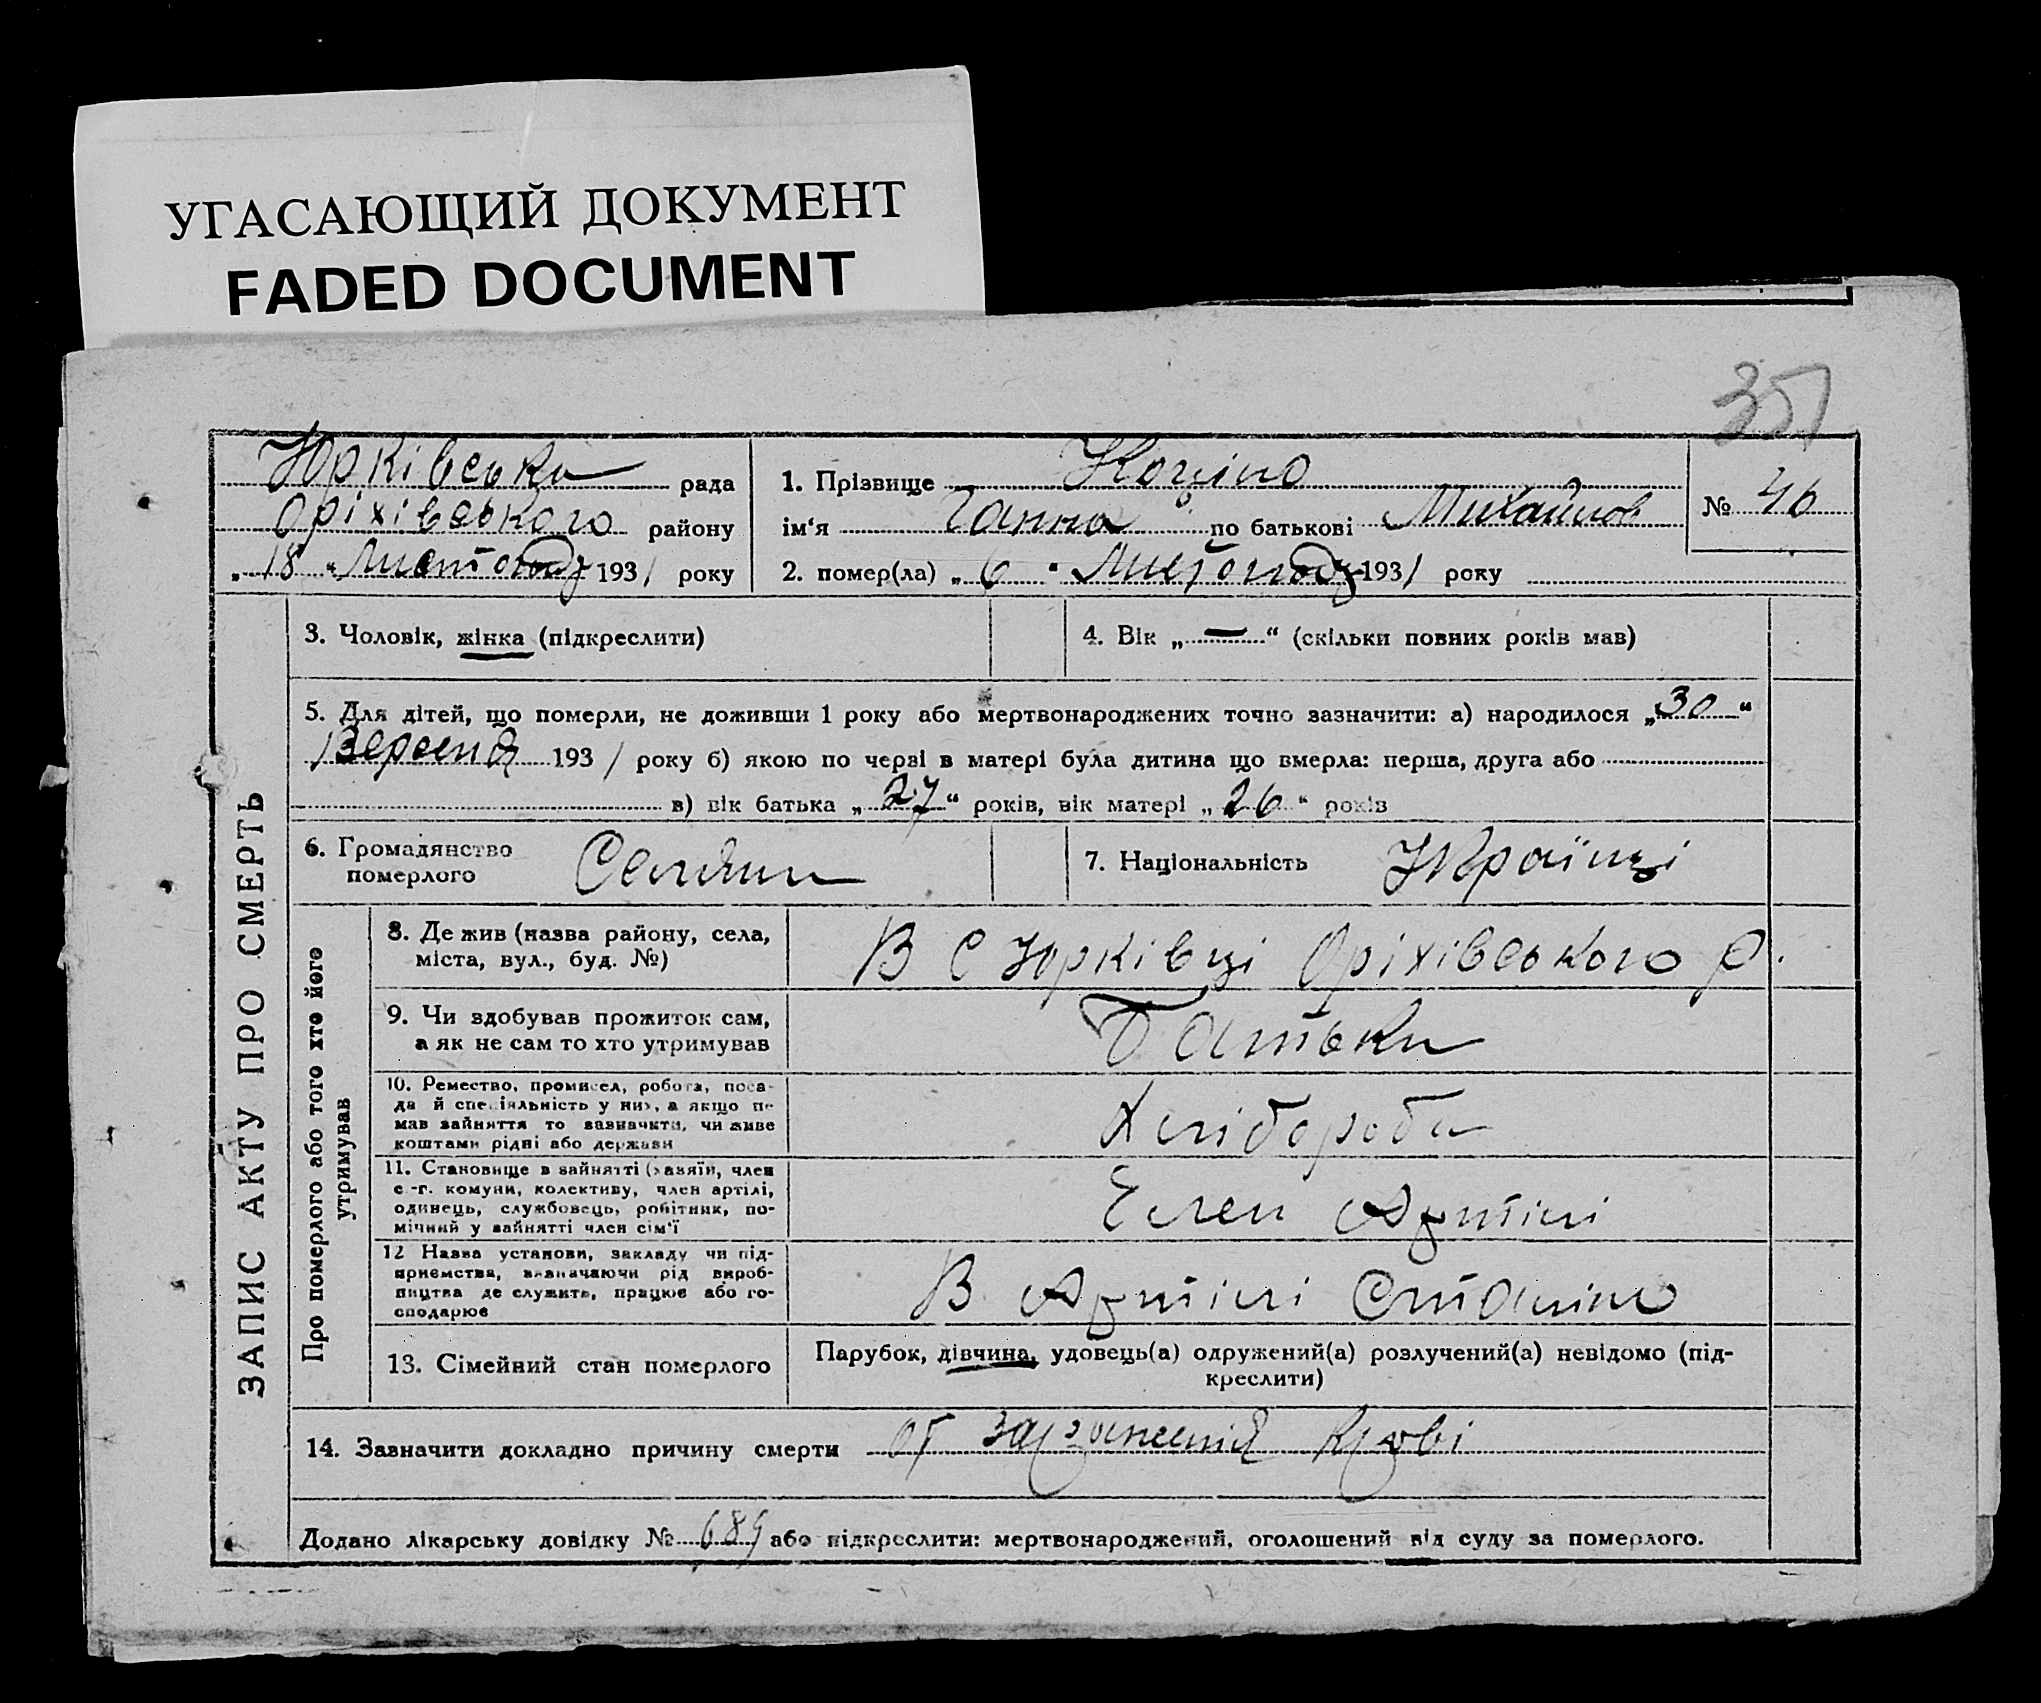 УГАСАЮЩИЙ ДОКУМЕНТ
FADED DOCUMENT
351
Юрківська рада
Оріхівського району
„ 18 " Листопада 1931 року
1. Прізвище
ім'я Ганна по батькові Михайлов
2. помер(ла) „ 6 " Листопада 1931 року
№ 46
ЗАПИС АКТУ ПРО СМЕРТЬ
3. Чоловік, жінка (підкреслити)
4. Вік „ — " (скільки повних років мав)
5. Для дітей, що померли, не доживши 1 року або мертвонароджених точно зазначити: а) народилося „ 30 "
Вересня 1931 року б) якою по черзі в матері була дитина що вмерла: перша, друга або
в) вік батька „ 27 " років, вік матері „ 26 " років
6. Громадянство
померлого Селяни
7. Національність Українці
Про померлого або того хто його
утримував
8. Де жив (назва району, села,
міста, вул., буд. №)
В С Юрківці Оріхівського р.
9. Чи здобував прожиток сам,
а як не сам то хто утримував
Батьки
10. Ремество, промисел, робота, поса-
да й спеціяльність у них, а якщо не
мав зайняття то зазначити, чи живе
коштами рідні або держави
Хлібороби
11. Становище в зайнятті (хазяїн, член
с.-г. комуни, колективу, член артілі,
одинець, службовець, робітник, по-
мічний у зайнятті член сім'ї
Член Артілі
12 Назва установи, закладу чи під-
приємства, визначаючи рід вироб-
ництва де служить, працює або го-
сподарює
В Артілі Сталіно
13. Сімейний стан померлого
Парубок, дівчина, удовець(а) одружений(а) розлучений(а) невідомо (під-
креслити)
14. Зазначити докладно причину смерти от зараженія крові
Додано лікарську довідку № 689 або підкреслити: мертвонароджений, оголошений від суду за померлого.